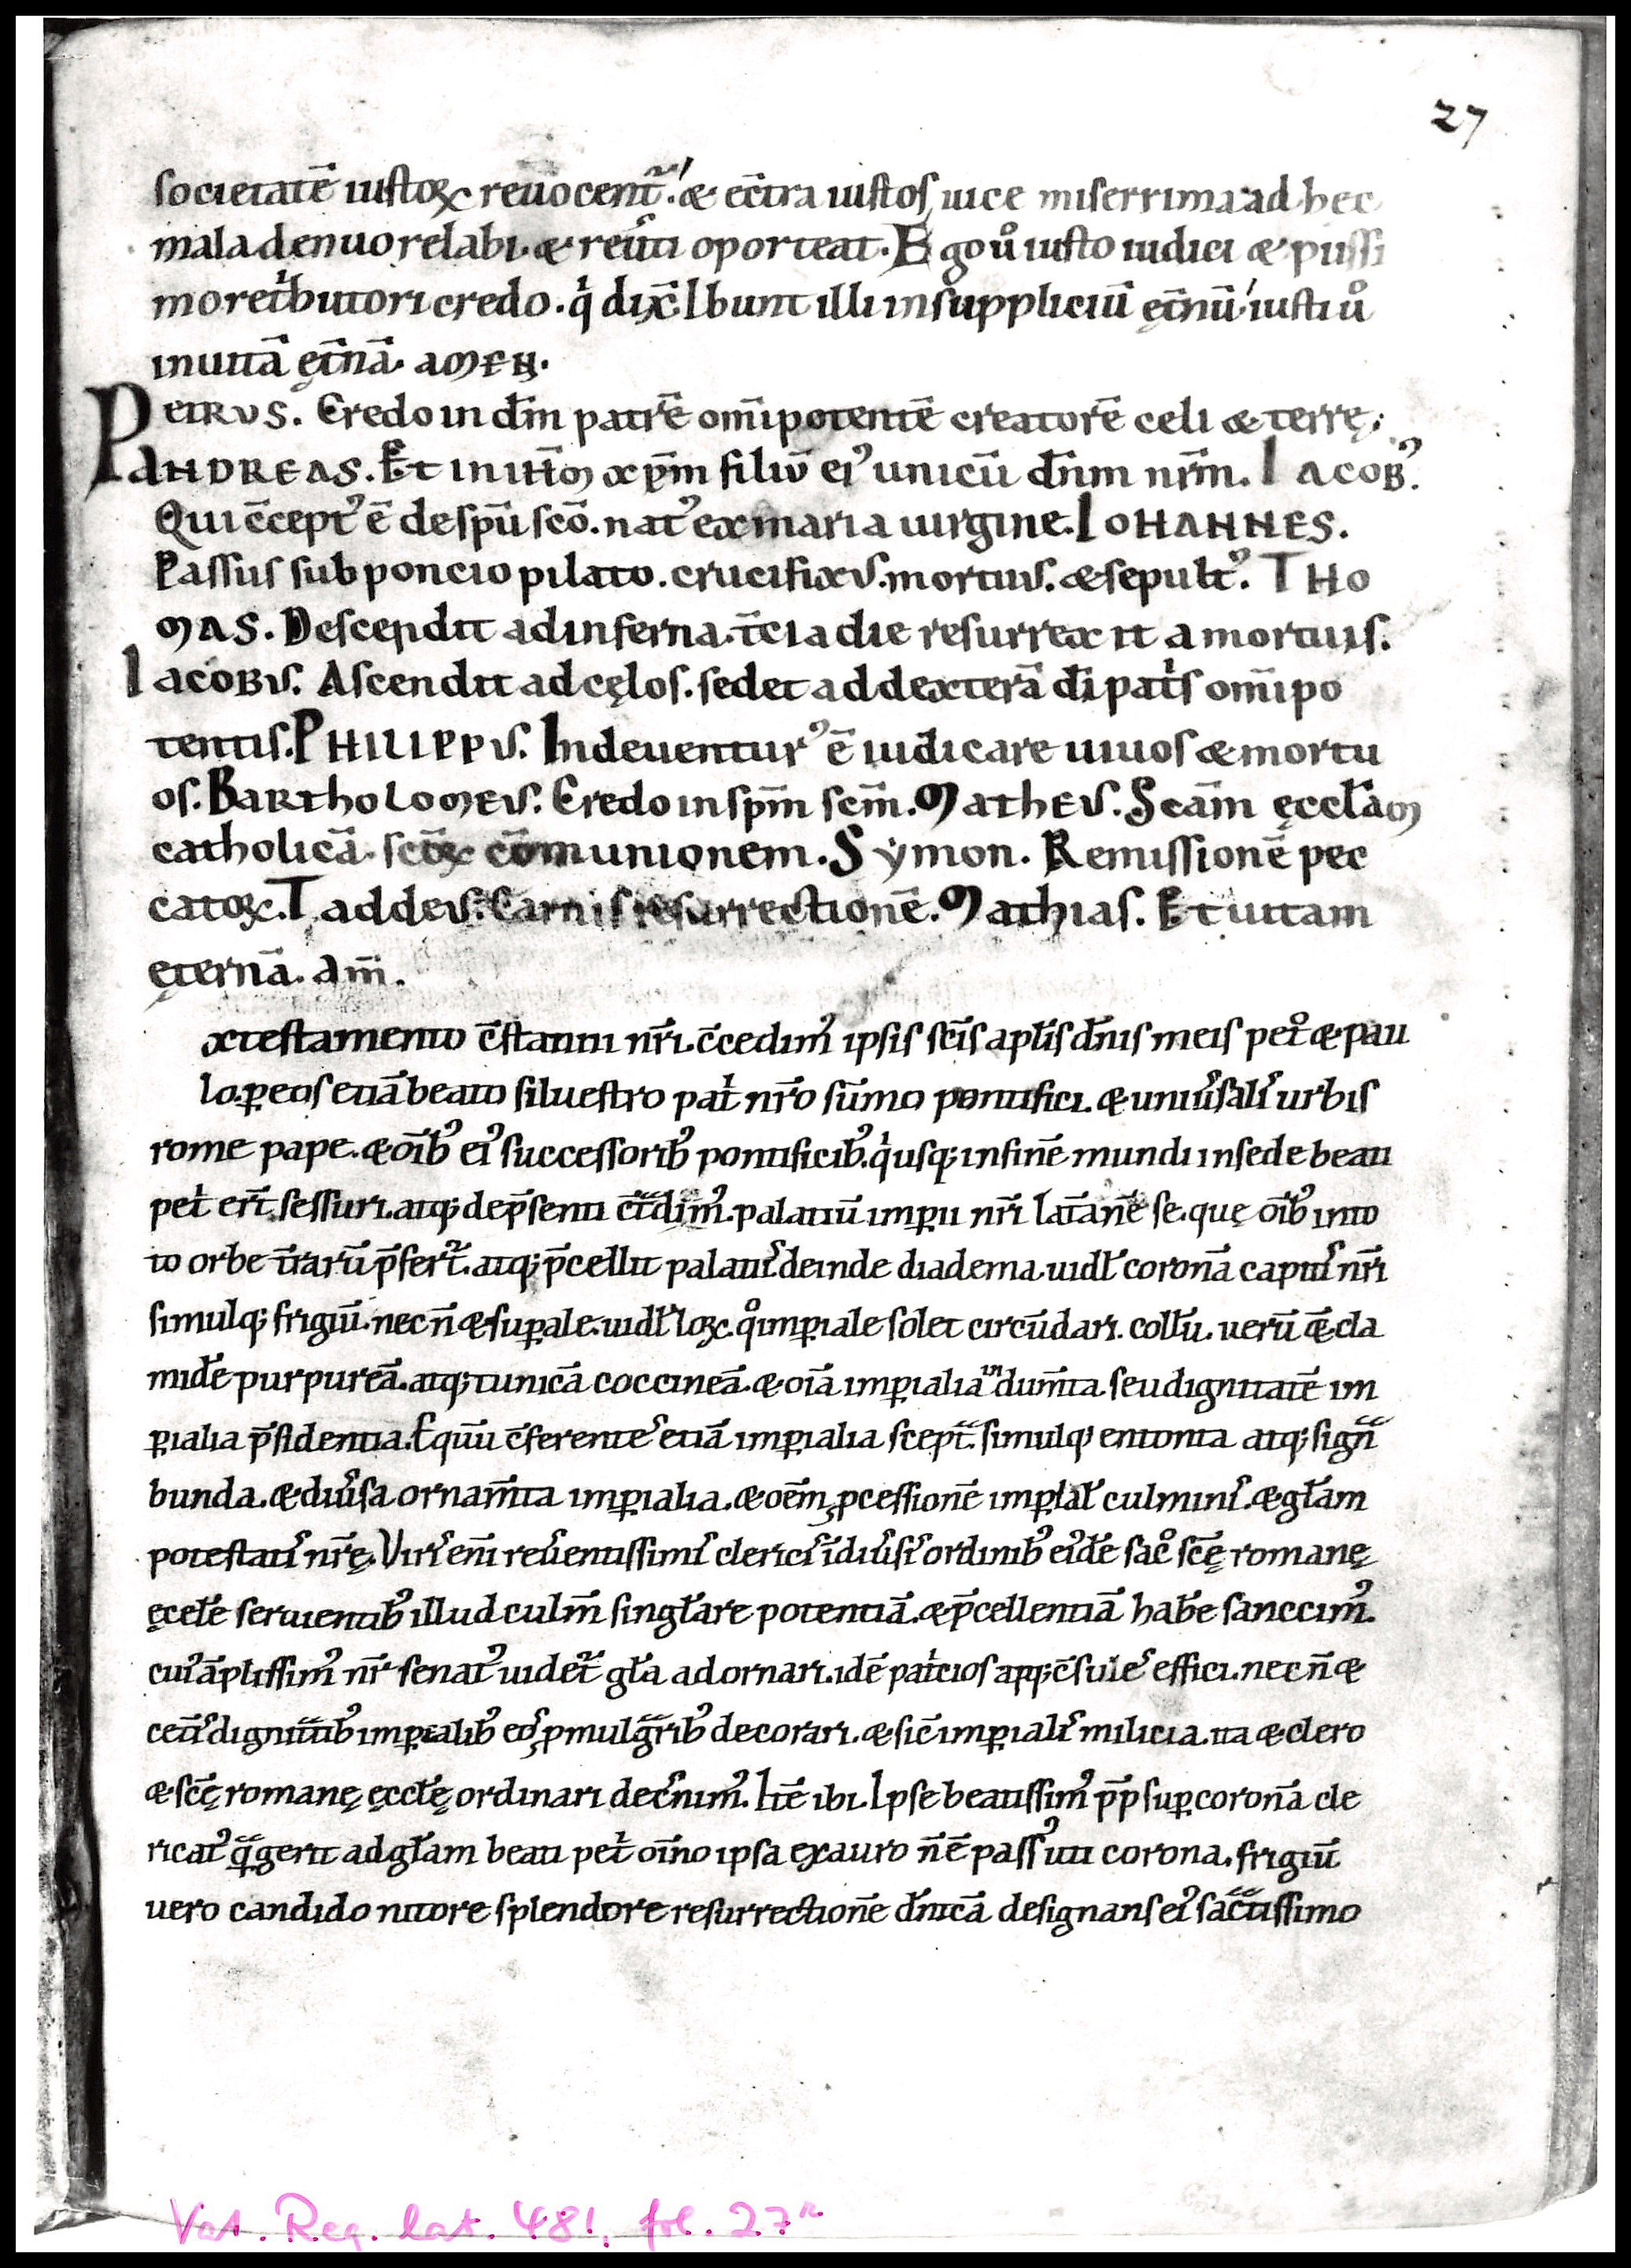 27
societatē iustoꝝ reuocent᷑. & ec̄tra iustos uice miserrima ad hec
mala denuo relabi. & reuͥti oporteat. Ego uͦ iusto iudici & piissi
mo retͥbutori credo. qͥ dix̄. Ibunt illi in suppliciū ęt̄nū. iusti uͦ
in uitā ęt̄nā. amen.
PETRVS. Credo in dm̄ patrē om̄ipotentē creatorē celi & terrę.
ANDREAS. Et in ihm̄ xpm̄ filiū eiꝰ unicū dn̄m nr̄m. IACOBꝰ.
Qui c̄ceptꝰ ē de spū scō. natꝰ ex maria uirgine. IOHANNES.
Passus sub poncio pilato. crucifixus. mortuus. & sepultꝰ. THO
MAS. Descendit ad inferna. t̄cia die resurrexit a mortuis.
IACOBVS. Ascendit ad cęlos. sedet ad dexterā dī patͥs om̄ipo
tentis. PHILIPPVS. Inde uenturꝰ ē iudicare uiuos & mortu
os. BARTHOLOMEVS. Credo in spm̄ scm̄. MATHEVS. Scām ęccłam
catholicā. scōꝝ cōmunionem. Symon. Remissionē pec
catoꝝ. Taddeus. Carnis resurrectionē. Mathias. Et uitam
ęternā. am̄.
x testamento c̄stantini nr̄i. c̄cedimꝰ ipsis sc̄is apłis dn̄is meis petͦ & pau
lo. ꝑ eos etiā beato siluestro patͥ nr̄o sūmo pontifici. & uniūsalis urbis
rome pape. & oīb; eiꝰ successorib; pontificib;. qͥ usq; in finē mundi in sede beati
petͥ er̄t sessuri. atq; de p̄senti c̄tᷓdimꝰ. palatiū imꝑii nr̄i lat̄anēse. quę oīb; in to
to orbe t̄rarū p̄fert᷑. atq; p̄cellit palatiis. deinde diadema. uidł coronā capitis nr̄i
simulq; frigiū. nec n̄ & suꝑale. uidł loꝝ. qͦ imꝑiale solet circūdari. collū. uerū & cla
midē purpureā. atq; tunicā coccineā. & oīa imꝑialia indum̄ta. seu dignitatē im
ꝑialia p̄sidentia. Equitū c̄ferentes etiā imꝑialia sceptᷓ. simulq; entonta atq; signᷓ
bunda. & diūsa ornam̄ta imꝑialia. & oēm ꝓcessionē imꝑlał culminis. & głam
potestatis nr̄ę. Viris eni reūentissimis clericis ī diūsis ordinib; eidē sacͦ sc̄ę romanę
ęcełe seruientib; illud culm̄ singłare potentiā. & p̄cellentiā habē sanccimꝰ.
cuiꝰ āplissimꝰ nr̄ senatꝰ uidet᷑ gła adornari. idē patͥcios atq; c̄sules effici. nec n̄ &
cet̄is dignitatib; imꝑialib; eos ꝓmulgᷓrib; decorari. & sic̄ imꝑialis milicia. ita & clero
& sc̄ę romanę ęccłę ordinari decnimꝰ. Itē ibi. Ipse beatissimꝰ pp̄ suꝑ coronā cle
ricatꝰ qᷓ gerit ad głam beati petͥ oīno ipsa ex auro n̄ ē passꝰ uti corona. frigiū
uero candido nitore splendore resurrectionē dn̄icā designans eiꝰ sacᷓtissimo
Vat. Reg. lat. 481, fol. 27r